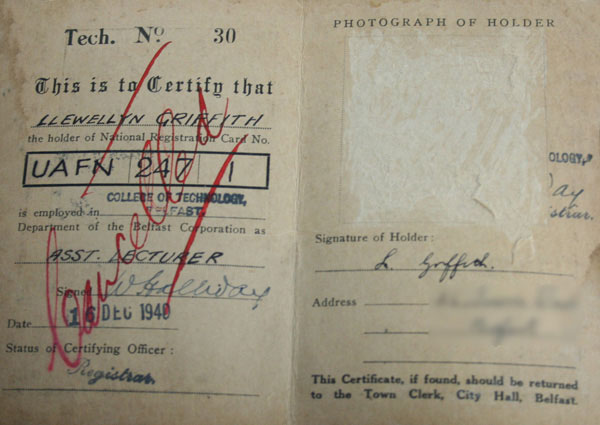 Tech. No. 30
This is to Certify that
LLEWELLYN GRIFFITH
the holder of National Registration Card No.
UAFN 247 1
COLLEGE OF TECHNOLOGY,
is employed in BELFAST.
Department of the Belfast Corporation as
ASST. LECTURER
Signed W Holliday
Date 16 DEC 1940
Status of Certifying Officer :
Registrar.
Cancelled
PHOTOGRAPH OF HOLDER
OLOGY,
day
istrar.
Signature of Holder :
L. Griffith.
Address
This Certificate, if found, should be returned
to the Town Clerk, City Hall, Belfast.